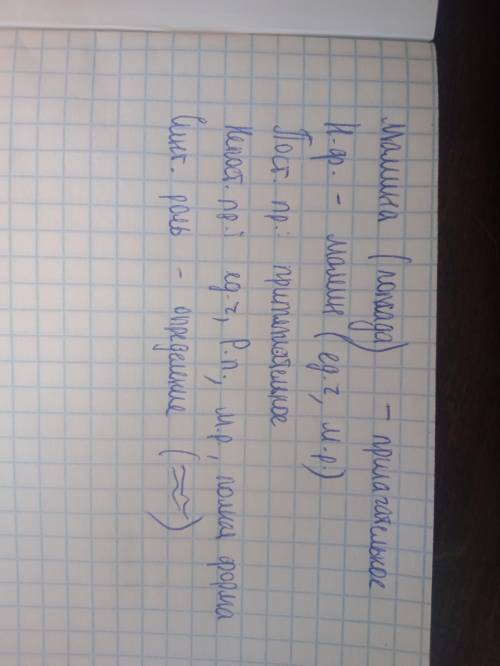 Мамина (помада) - прилагательное
Н.ф. - мамин (ед.ч, м.р.)
Пост. пр.: притяжательное
Непост. пр.: ед.ч, Р.п., м.р, полная форма
Синт. роль - определение